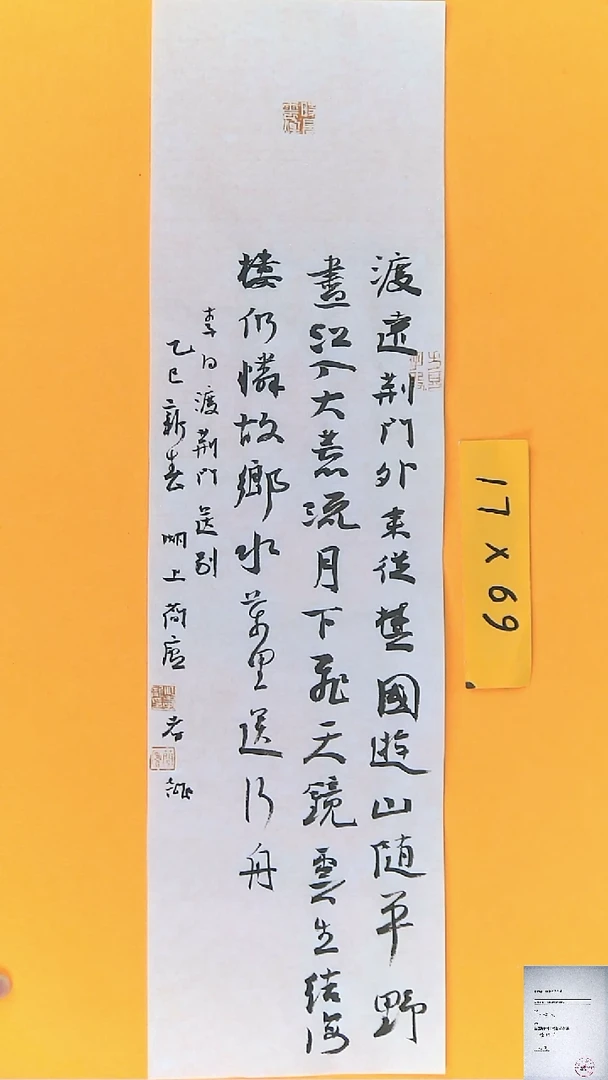 渡遠荆門外来從楚國遊山随平野
盡江入大荒流月下飛天鏡雲生結海
樓仍憐故鄉水萬里送行舟
李白渡荆門送别
乙巳新春湖上
17 x 69